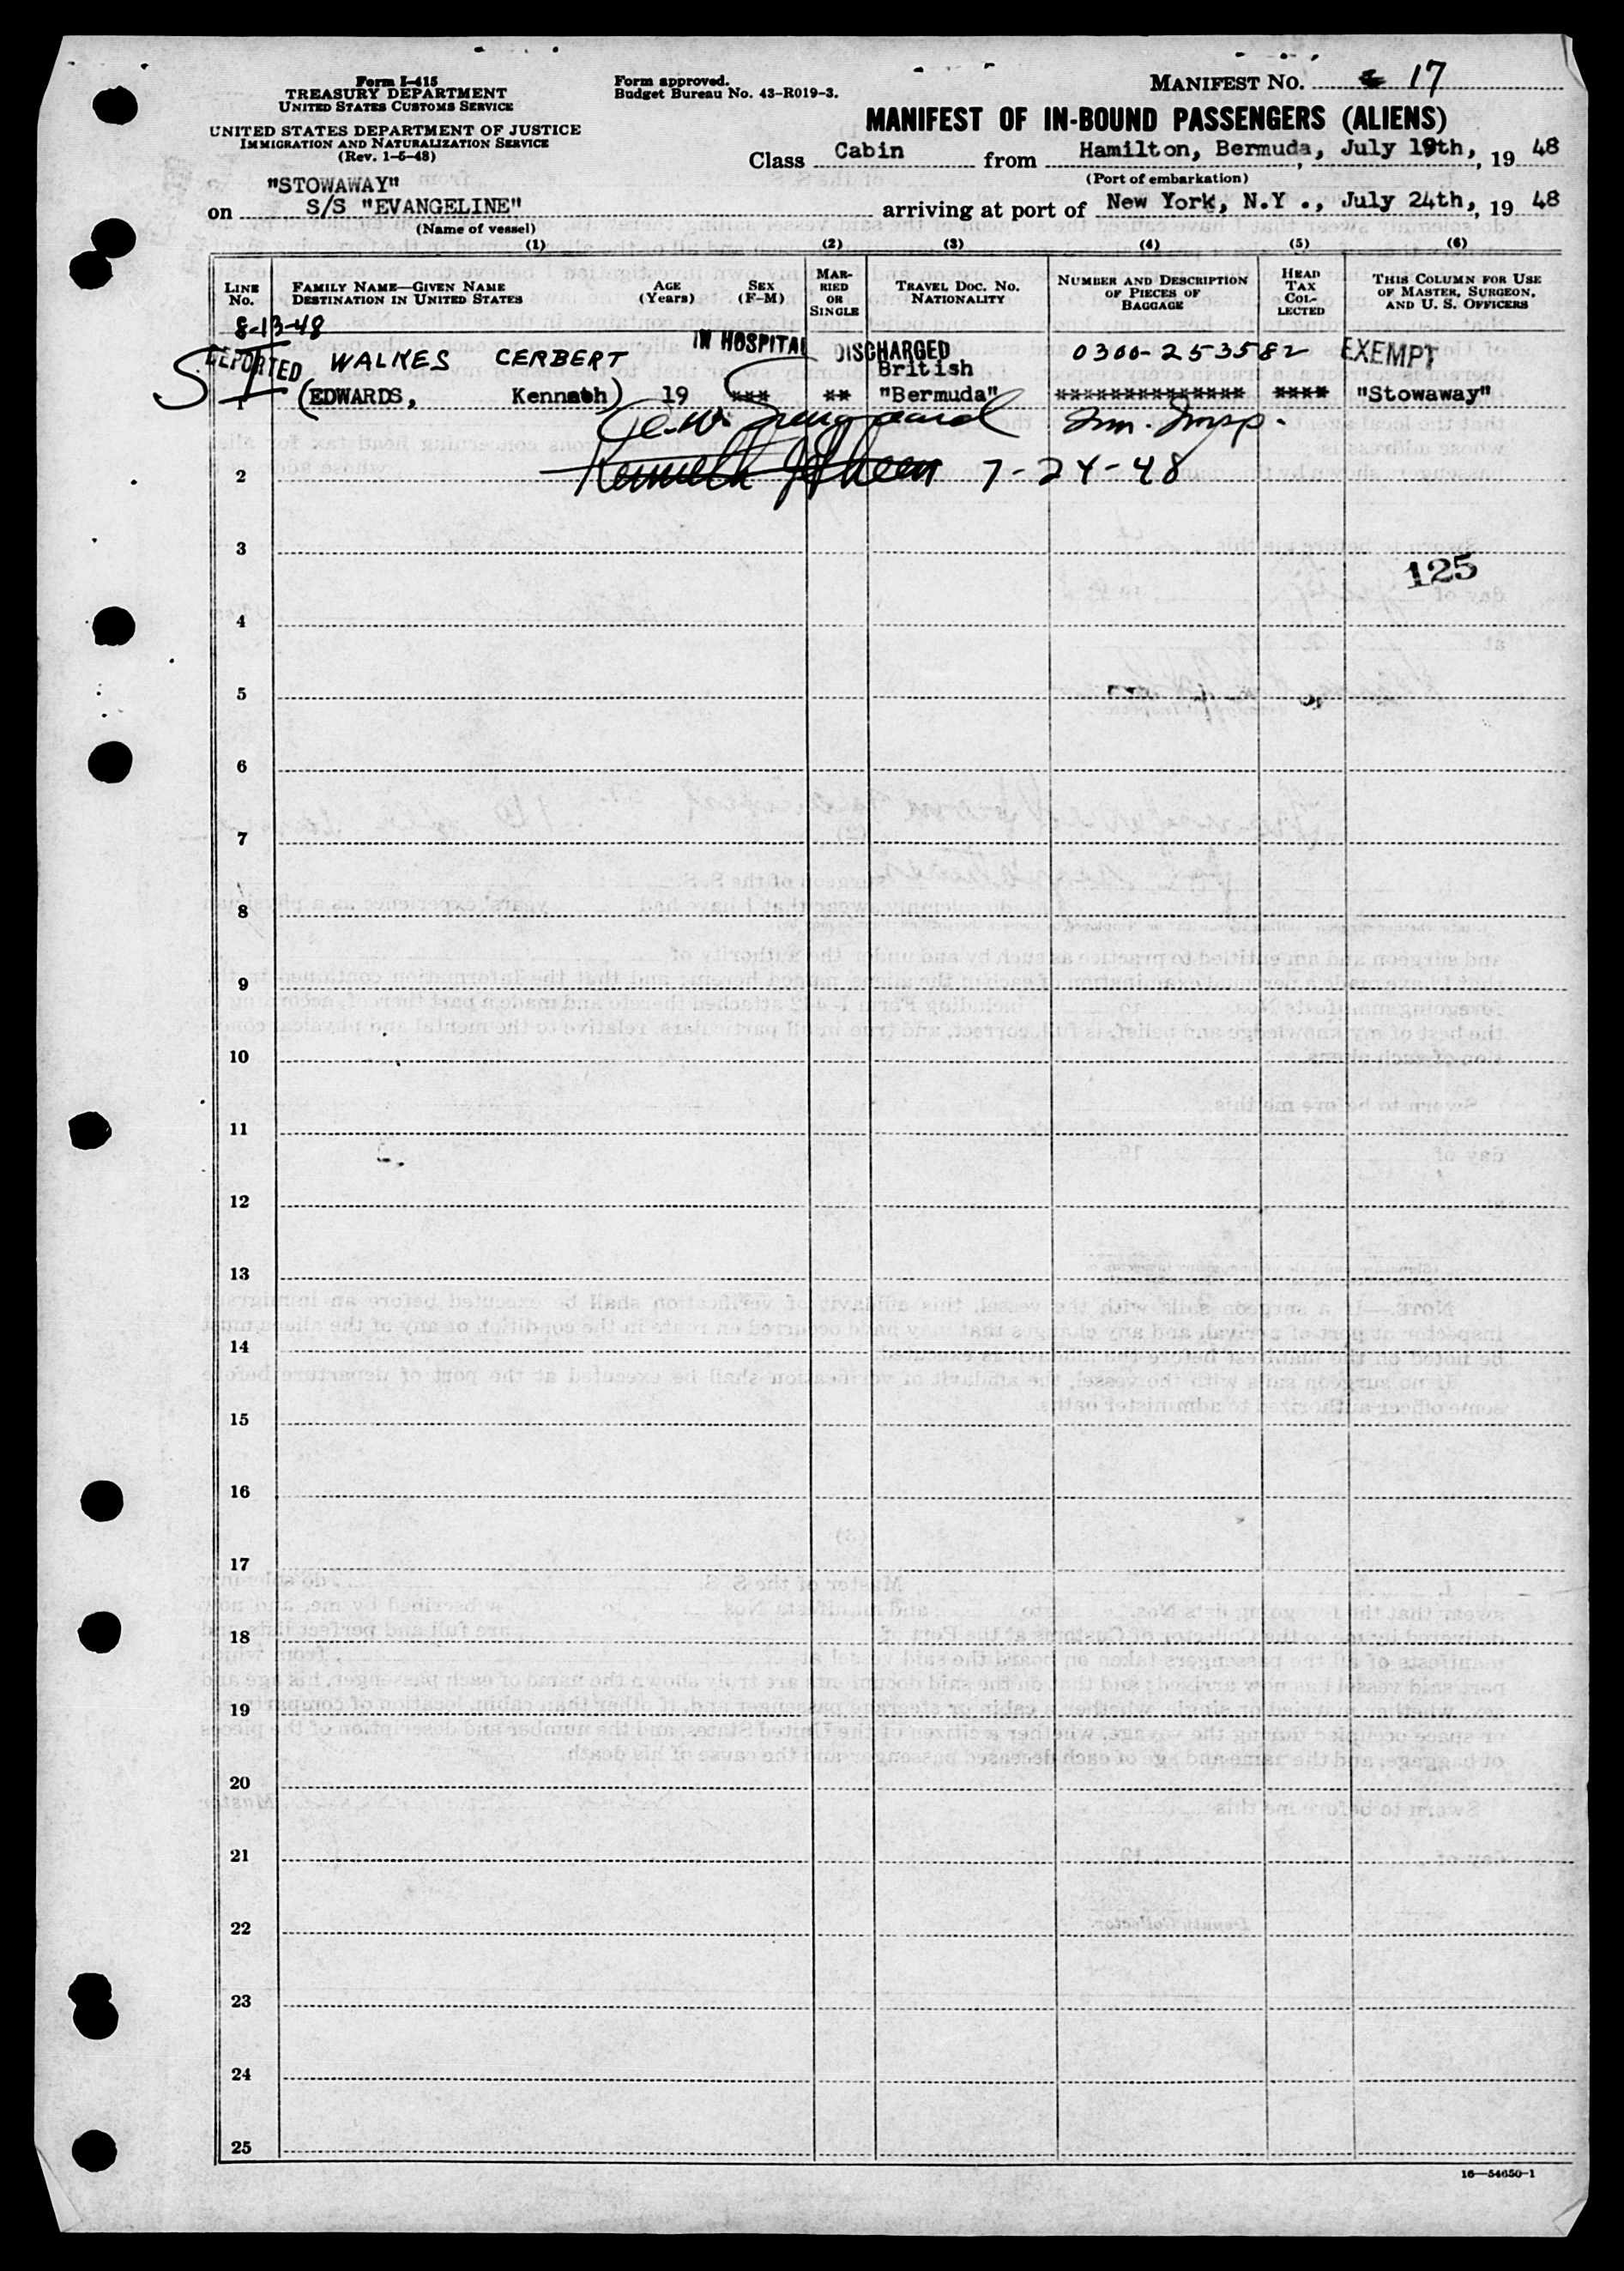 Form I-415
TREASURY DEPARTMENT
UNITED STATES CUSTOMS SERVICE
UNITED STATES DEPARTMENT OF JUSTICE
IMMIGRATION AND NATURALIZATION SERVICE
(Rev. 1-5-48)
Form approved.
Budget Bureau No. 43-R019-3.
MANIFEST NO. 17
MANIFEST OF IN-BOUND PASSENGERS (ALIENS)
Class Cabin from Hamilton, Bermuda, July 19th, 19 48
(Port of embarkation)
"STOWAWAY"
on S/S "EVANGELINE" arriving at port of New York, N.Y ., July 24th, 19 48
(Name of vessel)
(1) (2) (3) (4) (5) (6)
LINE No. FAMILY NAME—GIVEN NAME DESTINATION IN UNITED STATES AGE (Years) SEX (F-M) MARRIED OR SINGLE TRAVEL DOC. NO. NATIONALITY NUMBER AND DESCRIPTION OF PIECES OF BAGGAGE HEAD TAX COLLECTED THIS COLUMN FOR USE OF MASTER, SURGEON, AND U. S. OFFICERS
8-13-48
DEPORTED WALKES CERBERT IN HOSPITAL DISCHARGED 0300-253582 EXEMPT
British
SI 1 (EDWARDS, Kenneth) 19 *** ** "Bermuda" ************** **** "Stowaway"
Imm. Insp.
2 Kenneth 7-24-48
3
125
4
5
6
7
8
9
10
11
12
13
14
15
16
17
18
19
20
21
22
23
24
25
16—54650-1